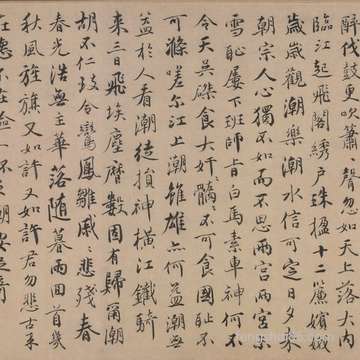 醉伐鼓更吹簫忽如天上落大内
臨江起飛閣繡戶珠楹十二簾嬪嬙
歲歲觀潮樂潮水信可定日夕來
朝宗人心獨不如而不思兩宮兩宮
雪恥屢下班師旨白馬素車神何不
令天吳桀食大奸髓髓不可食國恥不
可滌嗟尔江上潮雖雄亦何益潮無
益於人看潮徒損神橫江鐵騎
来三日飛埃塵曆數固有歸爾潮
胡不仁 令鸞鳳雛戚悲殘春
春光浩無主華落隨暮雨回首幾
秋風旌旗又如許又如許君勿悲古来